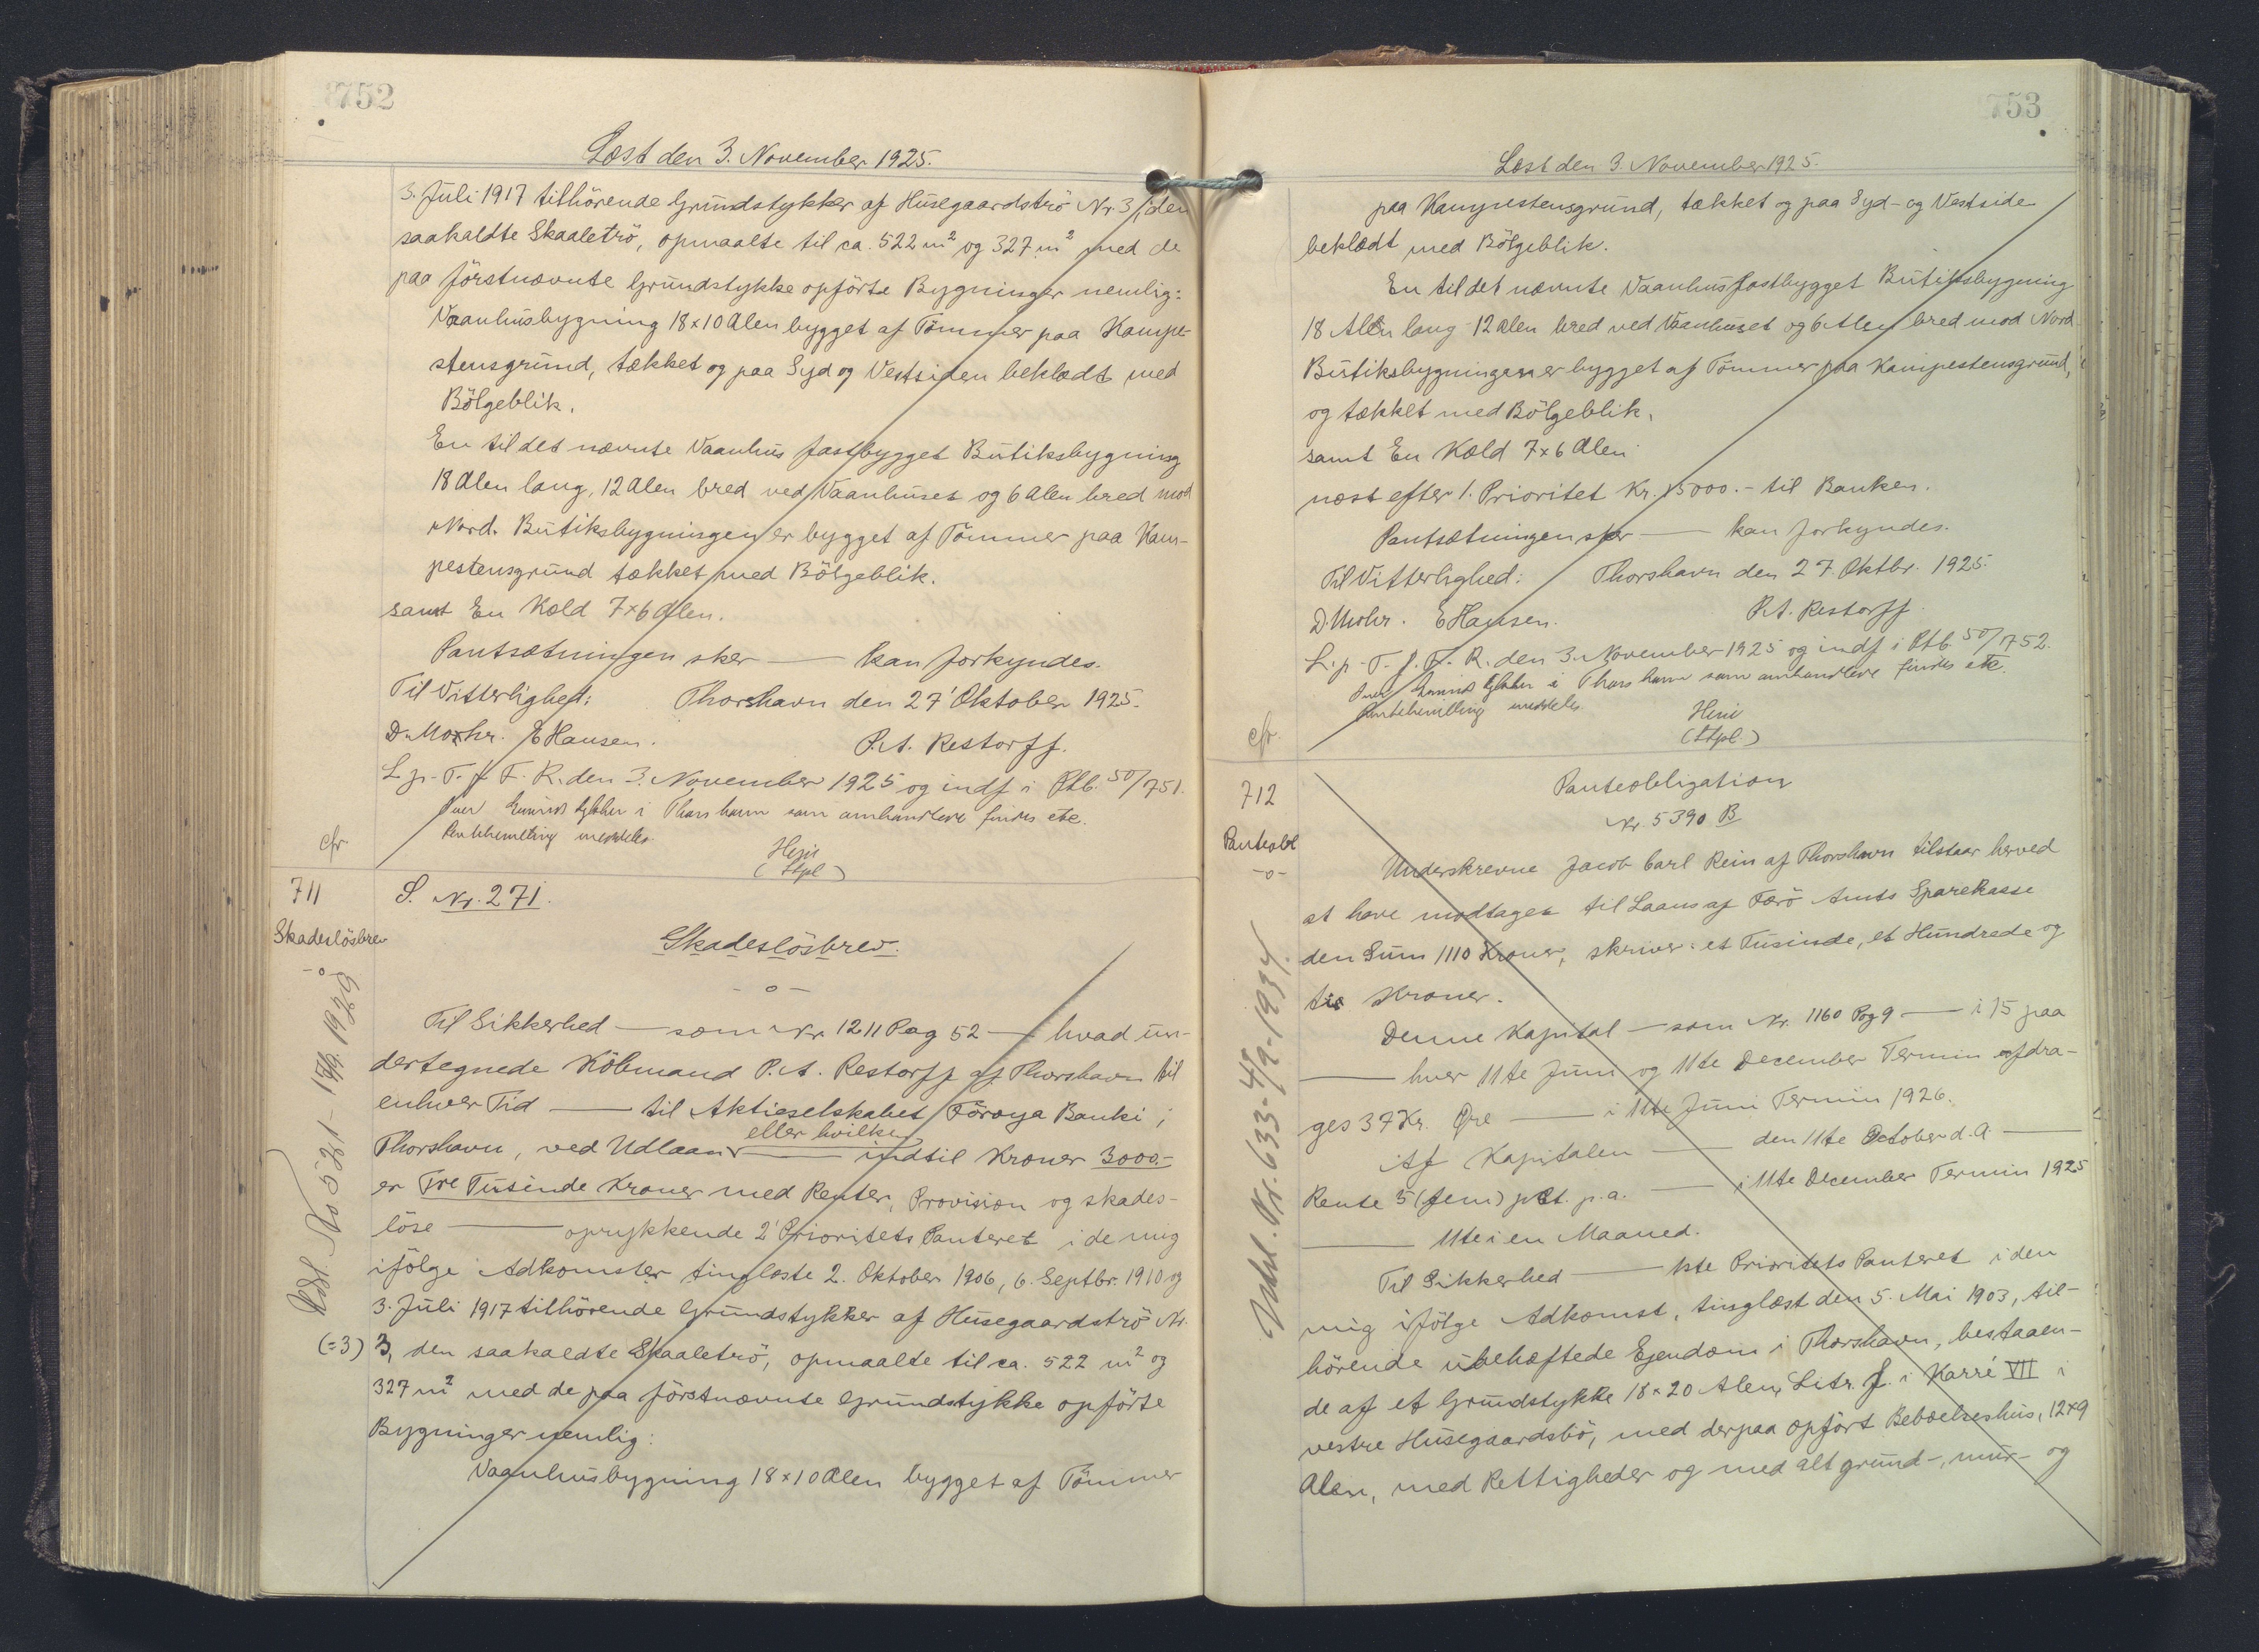 752
Læst den 3. November 1925.
3. Juli 1917 tilhörende Grundstykker af Husegaardströ Nr. 3, i den
saakaldte Skaaletrö, opmaalte til ca. 522 m² og 327 m² med de
paa förstnævnte Grundstykke opförte Bygninger nemlig:
Vaanhusbygning 18 x 10 Alen bygget af Tömmer paa Kampe-
stensgrund, tækket og paa Syd og Vestsiden beklædt med
Bölgeblik.
En til det nævnte Vaanhus fastbygget Butiksbygning
18 Alen lang, 12 Alen bred ved Vaanhuset og 6 Alen bred mod
Nord. Butiksbygningen er bygget af Tömmer paa Kam-
pestensgrund tækket med Bölgeblik.
samt En Kæld 7 x 6 Alen.
Pantsætningen sker — kan forkyndes.
Til Vitterlighed: Thorshavn den 27' Oktober 1925.
D. Mohr. E Hansen. P.A. Restorff.
L. p. T. f. F. R. den 3. November 1925 og indf i Ptb. 50/751.
Over Grundstykker i Thorshavn som omhandlede findes etc.
Pantebevilling meddeles.
cfr. Heni
(Stpl)
711
Skadeslösbrev
-o-
S. Nr. 271.
Skadeslösbrev.
- o -
Til Sikkerhed — som Nr 1211 Pag 52 — hvad un-
dertegnede Köbmand P.A. Restorff af Thorshavn til
enhver Tid — til Aktieselskabet Föroya Banki i
eller hvilken
Thorshavn, ved Udlaan — indtil Kroner 3000.-
er Tre Tusinde Kroner med Renter, Provision og skades-
löse — oprykkende 2' Prioritets Panteret i de mig
ifölge Adkomster tinglæste 2. Oktober 1906, 6. Septbr. 1910 og
3. Juli 1917 tilhörende Grundstykker af Husegaardströ Nr.
(=3) 3, den saakaldte Skaaletrö, opmaalte til ca. 522 m² og
327 m² med de paa förstnævnte Grundstykke opförte
Bygninger nemlig:
Vaanhusbygning 18 x 10 Alen bygget af Tömmer
753
Læst den 3. November 1925.
paa Kampestensgrund, tækket og paa Syd- og Vestside
beklædt med Bölgeblik.
En til det nævnte Vaanhus fastbygget Butiksbygning
18 Alen lang 12 Alen bred ved Vaanhuset og 6 Alen bred mod Nord.
Butiksbygningen er bygget af Tömmer paa Kampestensgrund,
og tækket med Bölgeblik.
samt En Kæld 7 x 6 Alen
næst efter 1. Prioritet Kr. 15000.- til Banken.
Pantsætningen sker — kan forkyndes.
Til Vitterlighed: Thorshavn den 27. Oktbr. 1925.
D. Mohr. E Hansen. P.A. Restorff.
L. p. T. f. F. R. den 3. November 1925 og indf i Ptb. 50/752.
Over Grundstykker i Thorshavn som omhandlede findes etc.
Pantebevilling meddeles
cfr. Heni
(Stpl)
712
Panteobl
-o-
Udsl. Nr. 633-4/9-1934.
Panteobligation
Nr. 5390 B
Underskrevne Jacob Carl Rein af Thorshavn tilstaar herved
at have modtaget til Laans af Færö Amts Sparekasse
den Sum 1110 Kroner, skriver: et Tusinde, et Hundrede og
ti Kroner.
Denne Kapital — som Nr. 1160 Pag 9 — i 15 paa
— hver 11te Juni og 11te December Termin afdra-
ges 37 Kr. Øre — i 11te Juni Termin 1926.
Af Kapitalen — den 11te October d. A —
Rente 5 (fem) pCt. p.a. — i 11te December Termin 1925
— 11te i en Maaned.
Til Sikkerhed — 1ste Prioritets Panteret i den
mig ifölge Adkomst, tinglæst den 5. Mai 1903, til-
hörende ubehæftede Ejendom i Thorshavn, bestaaen-
de af et Grundstykke 18 x 20 Alen, Litr. J. i Karré VII i
vestre Husegaardsbö, med derpaa opfört Beboelseshus, 12 x 9
Alen, med Rettigheder og med alt grund-, mur- og